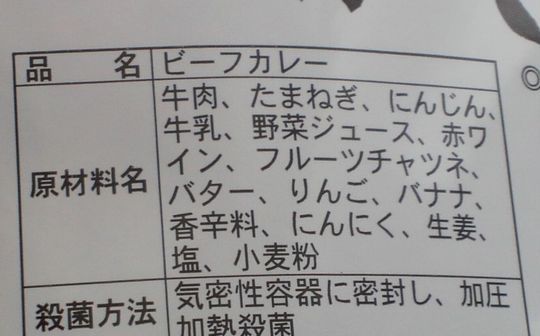 品名 ビーフカレー
原材料名 牛肉、たまねぎ、にんじん、
牛乳、野菜ジュース、赤ワ
イン、フルーツチャツネ、
バター、りんご、バナナ、
香辛料、にんにく、生姜、
塩、小麦粉
殺菌方法 気密性容器に密封し、加圧
加熱殺菌